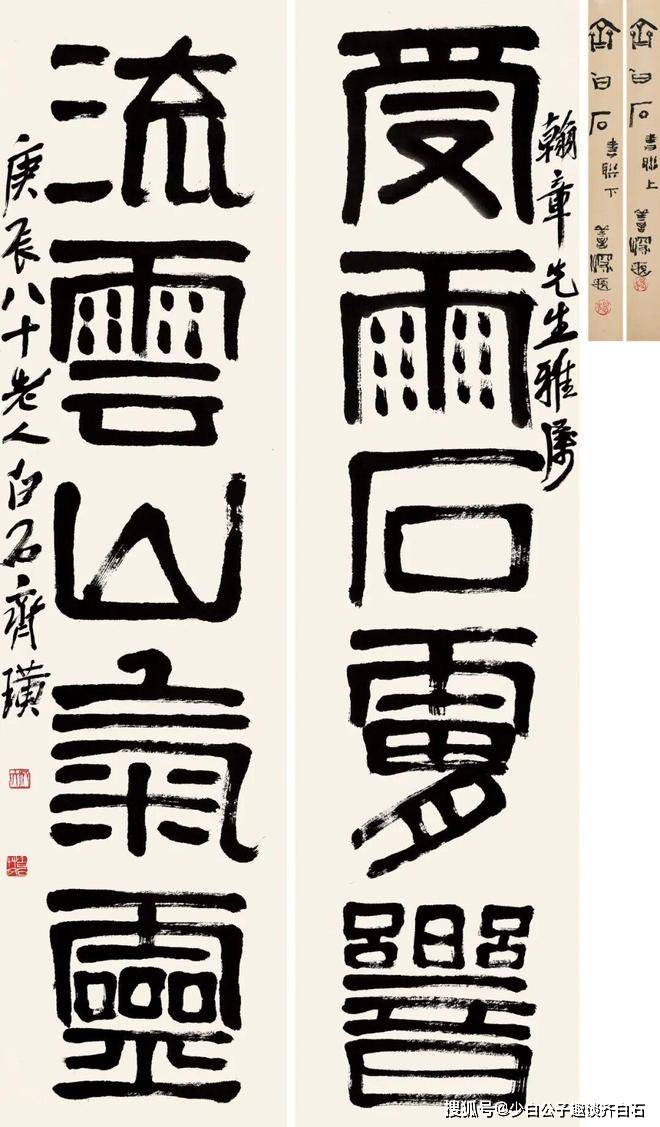 翰章先生雅屬
受雨石響
流雲山氣靈
庚辰八十老人白石齊璜
齊白石書聯上
齊白石書聯下
搜狐号@少白公子趣谈齐白石